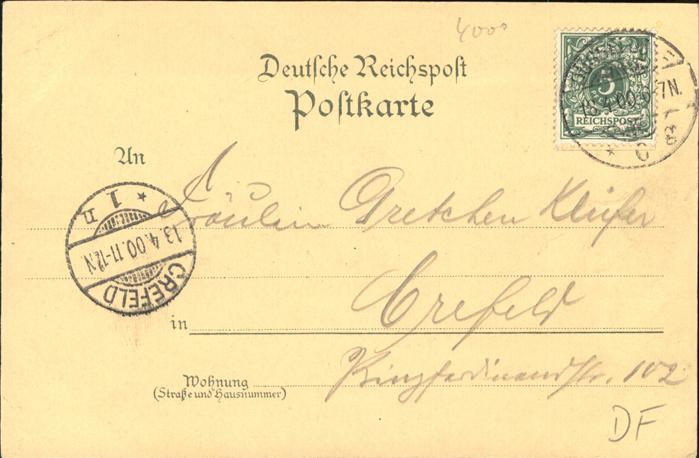 4000
Deutsche Reichspost
Postkarte
5
REICHSPOST
13.4.00.6-7N.
An
Fräulein Gretchen Küfer
* 1 n
13.4.00.11-12N
CREFELD
in Crefeld
Wohnung
(Straße und Hausnummer)
Prinzferdinandstr. 102
DF